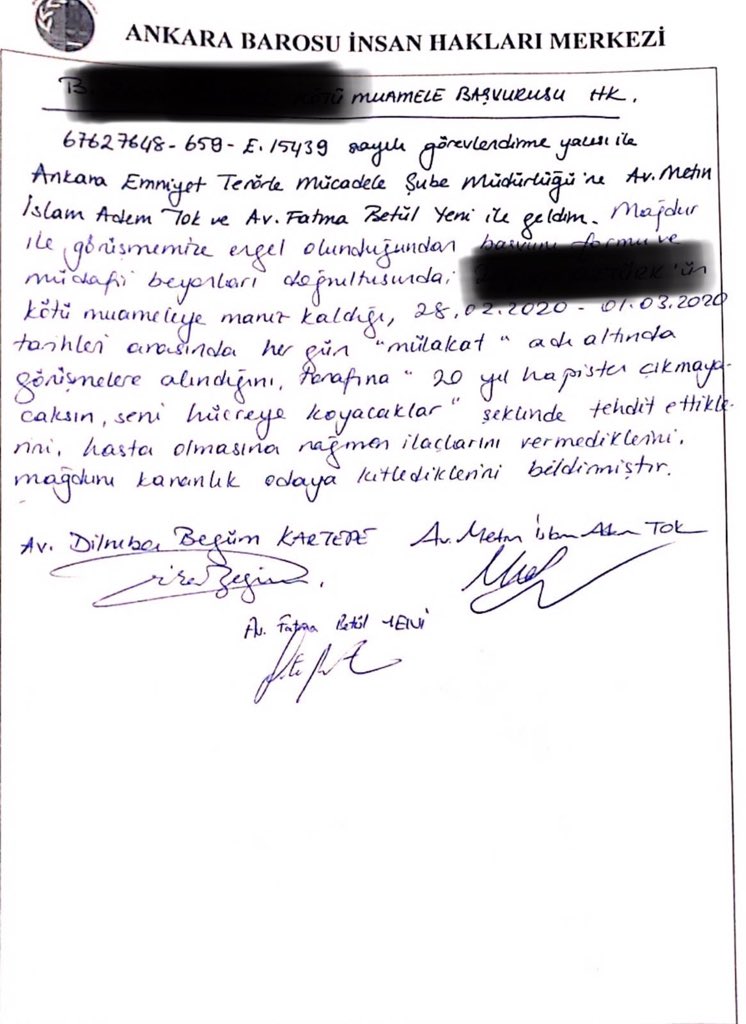 ANKARA BAROSU İNSAN HAKLARI MERKEZİ
KÖTÜ MUAMELE BAŞVURUSU HK.
67627648-659-E.15439 sayılı görevlendirme yazısı ile
Ankara Emniyet Terörle Mücadele Şube Müdürlüğü'ne Av. Metin
İslam Adem Tok ve Av. Fatma Betül Yeni ile geldim. Mağdur
ile görüşmemize engel olunduğundan başvuru formu ve
müdafii beyanları doğrultusunda;
kötü muameleye maruz kaldığı, 28.02.2020 - 01.03.2020
tarihleri arasında her gün "mülakat" adı altında
görüşmelere alındığını, tarafına "20 yıl hapisten çıkmaya-
caksın, seni hücreye koyacaklar" şeklinde tehdit ettikle-
rini, hasta olmasına rağmen ilaçlarını vermediklerini,
mağduru karanlık odaya kitlediklerini bildirmiştir.
Av. Dilruba Begüm KARTEPE Av. Metin İslam Adem TOK
Av. Fatma Betül YENİ